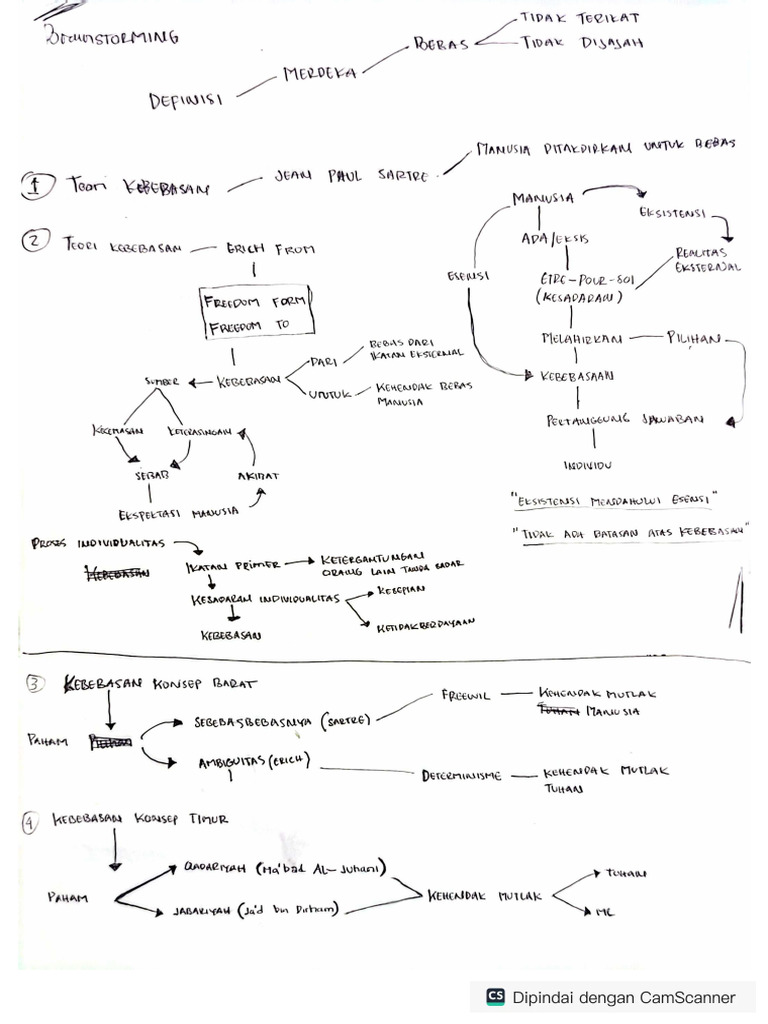 BRAINSTORMING
DEFINISI
MERDEKA
BEBAS
TIDAK TERIKAT
TIDAK DIJAJAH
1 TEORI KEBEBASAN
JEAN PAUL SARTRE
MANUSIA DITAKDIRKAN UNTUK BEBAS
MANUSIA
EKSISTENSI
ADA/EKSIS
REALITAS
EKSTERNAL
ESENSI
ETRE-POUR-SOI
(KESADARAN)
MELAHIRKAN
PILIHAN
KEBEBASAAN
PERTANGGUNG JAWABAN
INDIVIDU
"EKSISTENSI MENDAHULUI ESENSI"
"TIDAK ADA BATASAN ATAS KEBEBASAN"
2 TEORI KEBEBASAN
ERICH FROM
FREEDOM FORM
FREEDOM TO
SUMBER
KEBEBASAN
DARI
BEBAS DARI
IKATAN EKSTERNAL
UNTUK
KEHENDAK BEBAS
MANUSIA
KECEMASAN
KETERASINGAN
SEBAB
AKIBAT
EKSPEKTASI MANUSIA
PROSES INDIVIDUALITAS
KEBEBASAN
IKATAN PRIMER
KETERGANTUNGAN
ORANG LAIN TANPA SADAR
KESADARAN INDIVIDUALITAS
KESEPIAN
KETIDAKBERDAYAAN
KEBEBASAN
3 KEBEBASAN KONSEP BARAT
PAHAM
SEBEBASBEBASNYA (SARTRE)
FREEWIL
KEHENDAK MUTLAK
TUHAN MANUSIA
AMBIGUITAS (ERICH)
DETERMINISME
KEHENDAK MUTLAK
TUHAN
4 KEBEBASAN KONSEP TIMUR
PAHAM
QADARIYAH (Ma'bad AL-Juhani)
JABARIYAH (Ja'd bin Dirham)
KEHENDAK MUTLAK
TUHAN
CS Dipindai dengan CamScanner